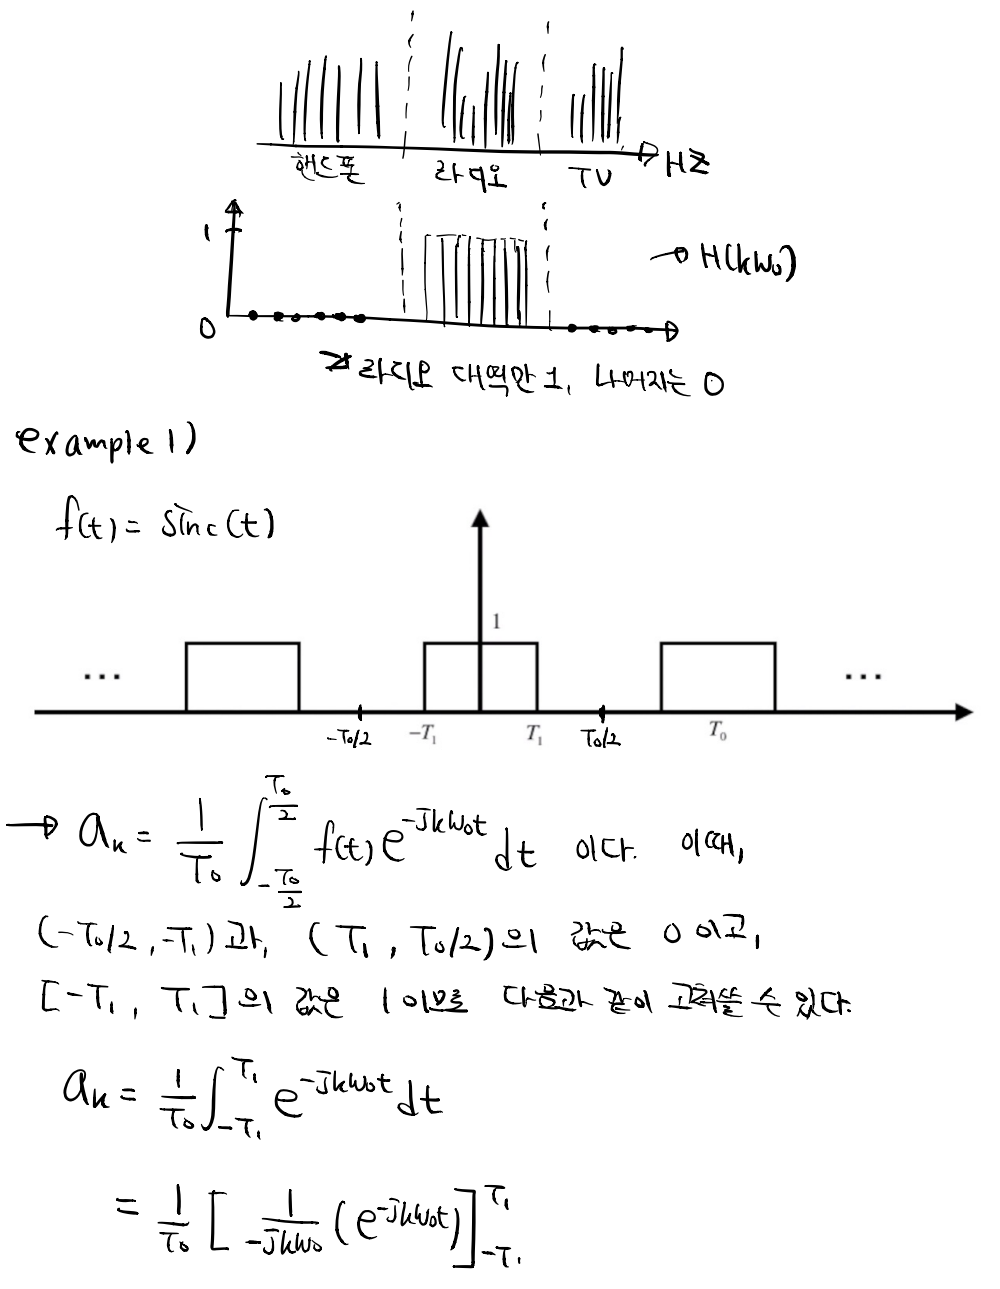 핸드폰 라디오 TV HZ
1
H(kω₀)
0
→ 라디오 대역만 1, 나머지는 0
example 1)
f(t) = sinc(t)
1
... ...
-T₀/2 -T₁ T₁ T₀/2 T₀
→ aₖ = 1/T₀ ∫_{-T₀/2}^{T₀/2} f(t) e^{-jkω₀t} dt 이다. 이때,
(-T₀/2, -T₁)과, (T₁, T₀/2)의 값은 0 이고,
[-T₁, T₁]의 값은 1 이므로 다음과 같이 고쳐쓸 수 있다.
aₖ = 1/T₀ ∫_{-T₁}^{T₁} e^{-jkω₀t} dt
= 1/T₀ [ 1/(-jkω₀) (e^{-jkω₀t}) ]_{-T₁}^{T₁}